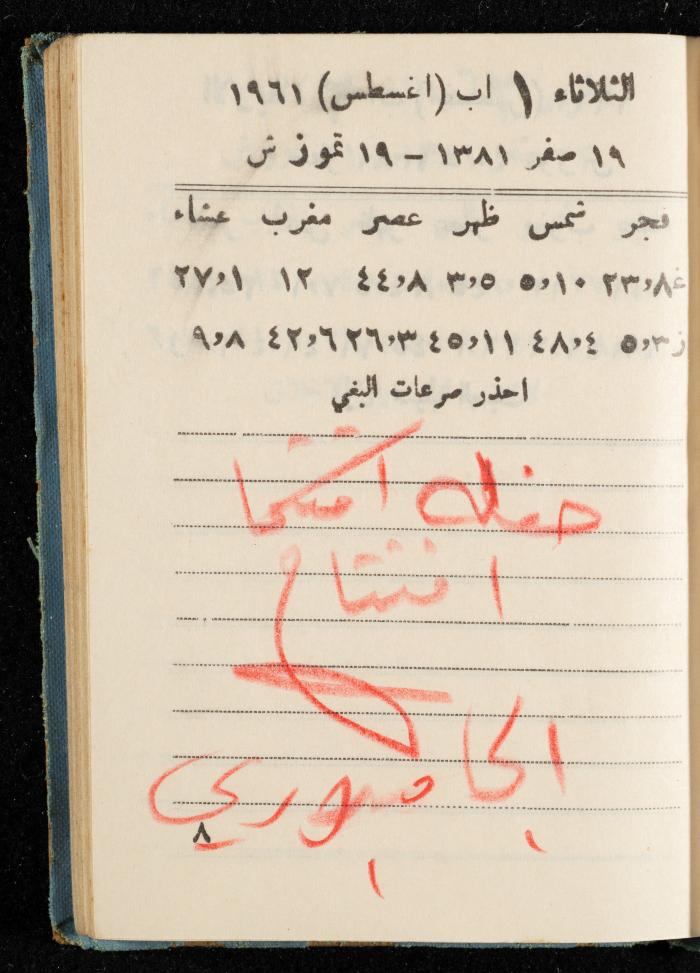 الثلاثاء ١ اب (اغسطس) ١٩٦١
١٩ صفر ١٣٨١ – ١٩ تموز ش
فجر شمس ظهر عصر مغرب عشاء
غ ٨,٢٣ ١٠,٥ ٥,٣ ٨,٤٤ ١٢ ١,٢٧
ز ٣,٥ ٤,٤٨ ١١,٤٥ ٣,٢٦ ٦,٤٢ ٨,٩
احذر صرعات البغي
حفلة
افتتاح
٨